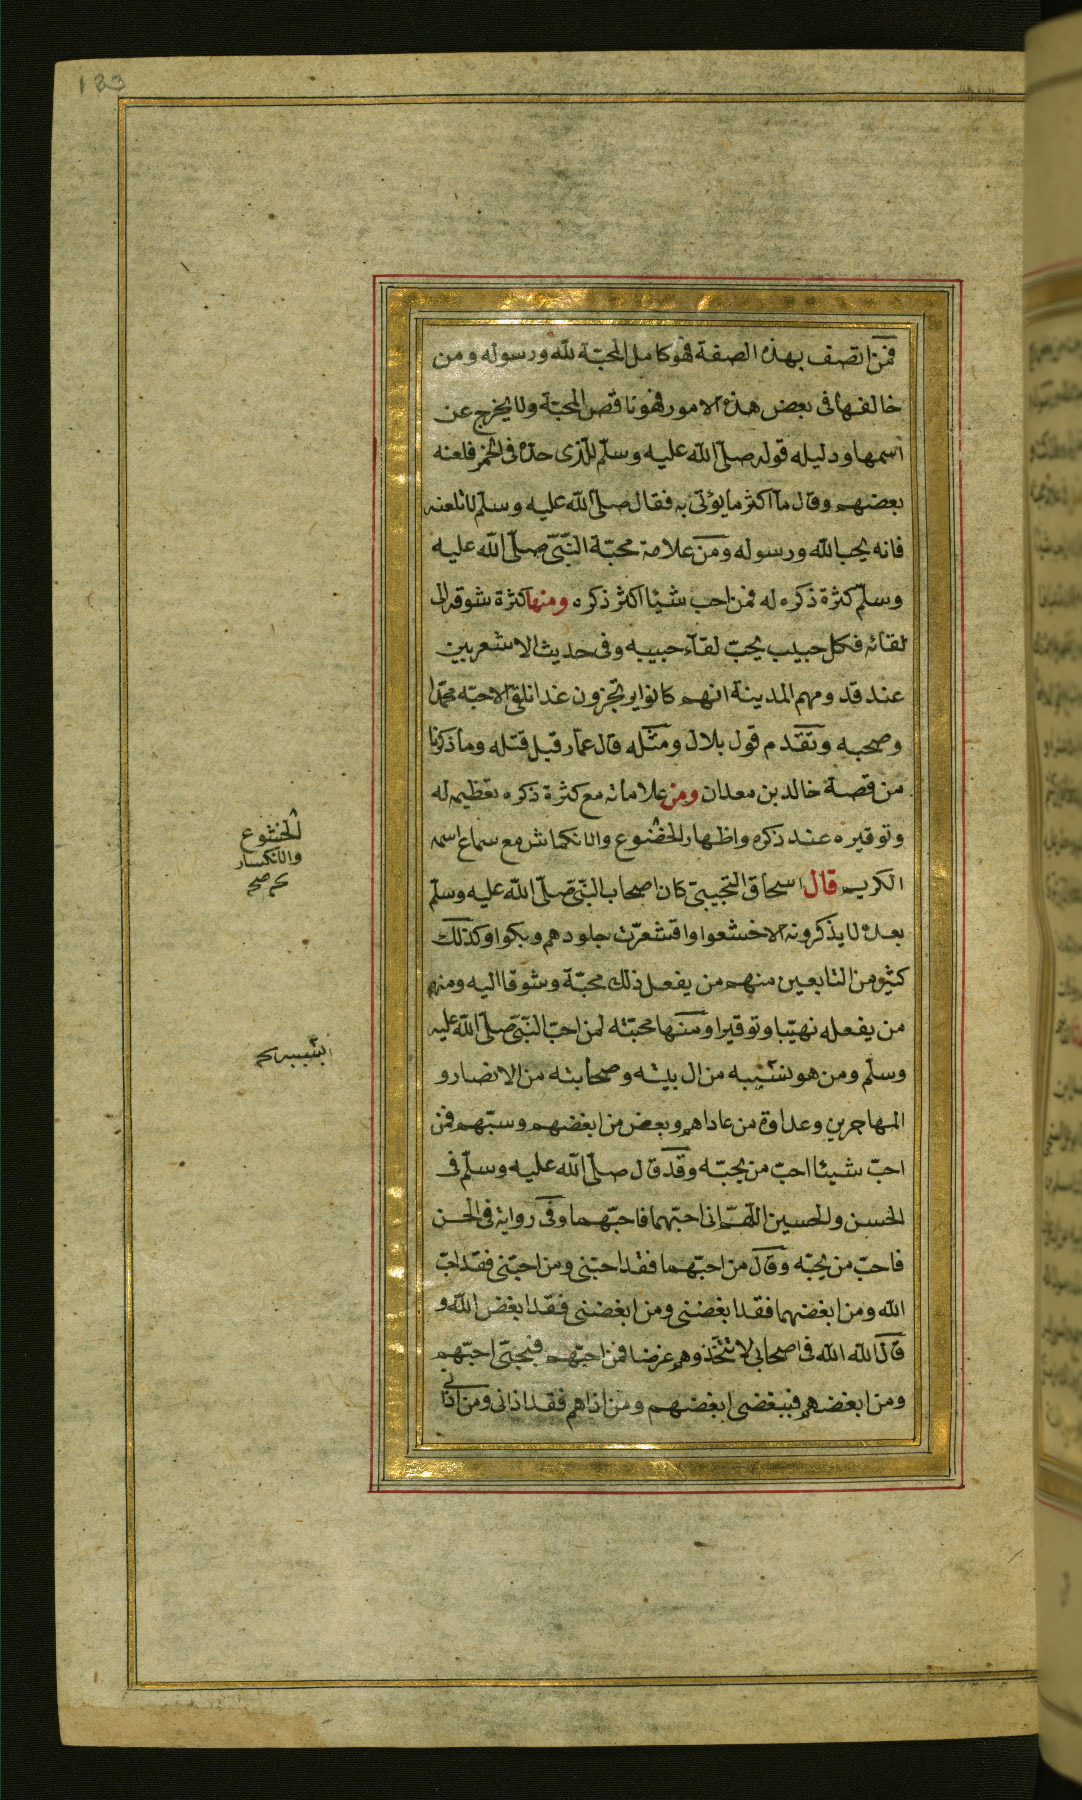 133
فمن اتصف بهذه الصفة فهو كامل المحبّة لله ورسوله ومن
خالفها فى بعض هذه الامور فهو ناقص المحبّة ولا يخرج عن
اسمها ودليله قوله صلّى الله عليه وسلّم للّذى حدّه فى الخمر فلعنه
بعضهم وقال ما اكثر ما يؤتى به فقال صلّى الله عليه وسلّم لا تلعنه
فانه يحب الله ورسوله ومن علامة محبّة النّبىّ صلّى الله عليه
وسلّم كثرة ذكره له فمن احب شيئا اكثر ذكره ومنها كثرة شوقه الى
لقائه فكل حبيب يحبّ لقاء حبيبه وفى حديث الاشعريين
عند قدومهم المدينة انهم كانوا يرتجزون غدا نلقى الاحبّه محمّدا
وصحبه وتقدم قول بلال ومثله قال عمار قبل قتله وما ذكرنا
من قصة خالد بن معدان ومن علاماته مع كثرة ذكره تعظيمه له
وتوقيره عند ذكره واظهار الخضوع والانكماش مع سماع اسمه
الكريم قال اسحاق التجيبىّ كان اصحاب النّبىّ صلّى الله عليه وسلّم
بعده لا يذكرونه الا خشعوا واقشعرّت جلودهم وبكوا وكذلك
كثير من التابعين منهم من يفعل ذلك محبّة وشوقا اليه ومنهم
من يفعله تهيّبا وتوقيرا ومنها محبّته لمن احبّ النّبىّ صلّى الله عليه
وسلّم ومن هو بسبيبه من ال بيته وصحابته من الانصار و
المهاجرين وعداوة من عاداهم وبعض من ابغضهم وسبّهم فمن
احبّ شيئا احبّ من يحبّه وقد قال صلّى الله عليه وسلّم فى
الحسن والحسين اللهمّ انى احبّهما فاحبّهما وفى رواية فى الحسن
فاحبّ من يحبّه وقال من احبّهما فقد احبّنى ومن احبّنى فقد احبّ
الله ومن ابغضهما فقد ابغضنى ومن ابغضنى فقد ابغض الله و
قال الله الله فى اصحابى لا تتّخذوهم غرضا فمن احبّهم فبحبّى احبّهم
ومن ابغضهم فببغضى ابغضهم ومن اذاهم فقد اذانى ومن اذانى
الخشوع
والانكسار
صح